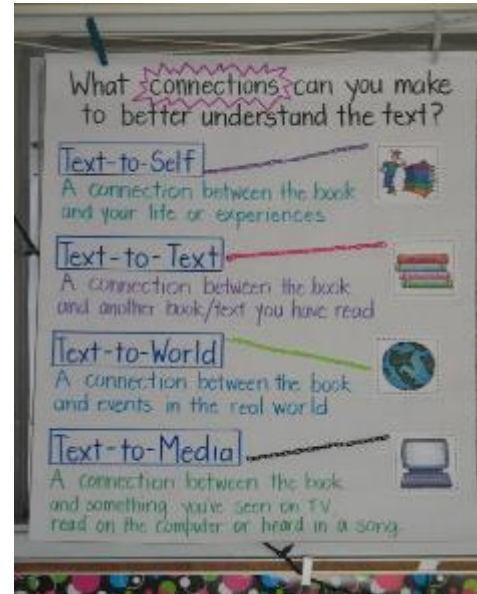 What connections can you make
to better understand the text?
Text-to-Self
A connection between the book
and your life or experiences
Text-to-Text
A connection between the book
and another book/text you have read
Text-to-World
A connection between the book
and events in the real world
Text-to-Media
A connection between the book
and something you've seen on TV,
read on the computer or heard in a song.